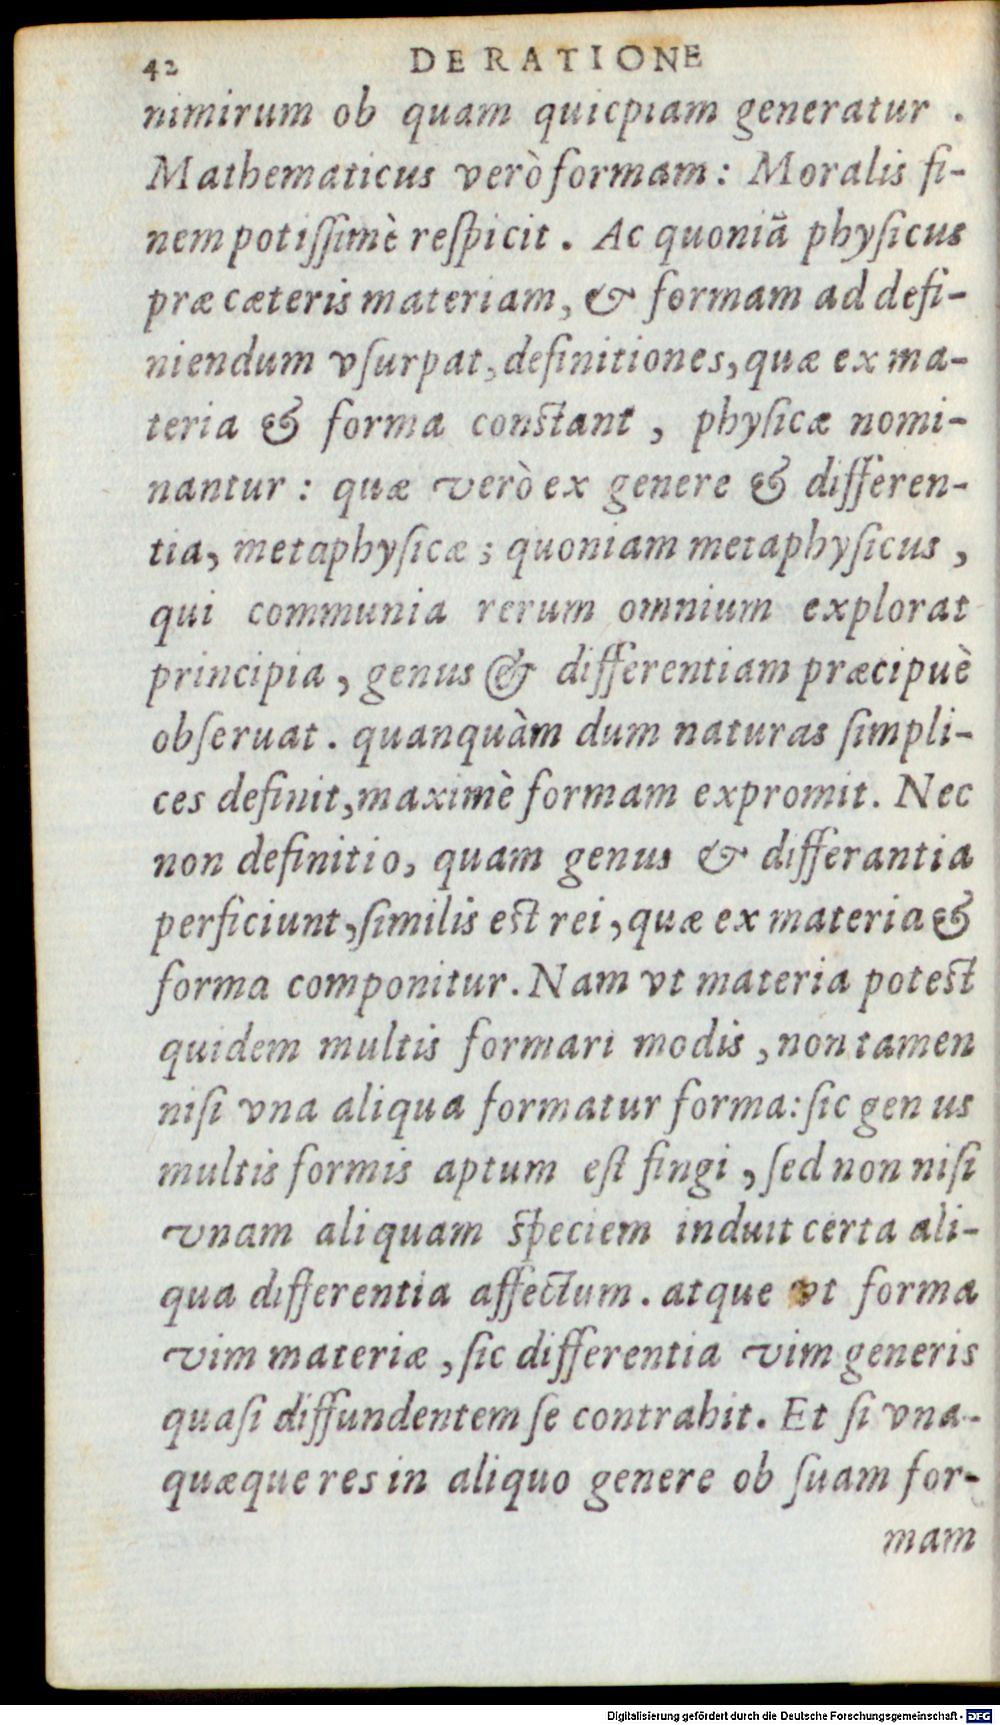 42 DE RATIONE
nimirum ob quam quicpiam generatur .
Mathematicus verò formam: Moralis fi-
nem potißimè respicit. Ac quoniã physicus
præ cæteris materiam, & formam ad defi-
niendum vsurpat, definitiones, quæ ex ma-
teria & forma constant, physicæ nomi-
nantur: quæ verò ex genere & differen-
tia, metaphysicæ; quoniam metaphysicus,
qui communia rerum omnium explorat
principia, genus & differentiam præcipuè
obseruat. quanquàm dum naturas simpli-
ces definit, maximè formam expromit. Nec
non definitio, quam genus & differantia
perficiunt, similis est rei, quæ ex materia &
forma componitur. Nam vt materia potest
quidem multis formari modis, non tamen
nisi vna aliqua formatur forma: sic gen us
multis formis aptum est fingi, sed non nisi
vnam aliquam speciem induit certa ali-
qua differentia affectum. atque vt forma
vim materiæ, sic differentia vim generis
quasi diffundentem se contrahit. Et si vna-
quæque res in aliquo genere ob suam for-
mam
Digitalisierung gefördert durch die Deutsche Forschungsgemeinschaft - DFG